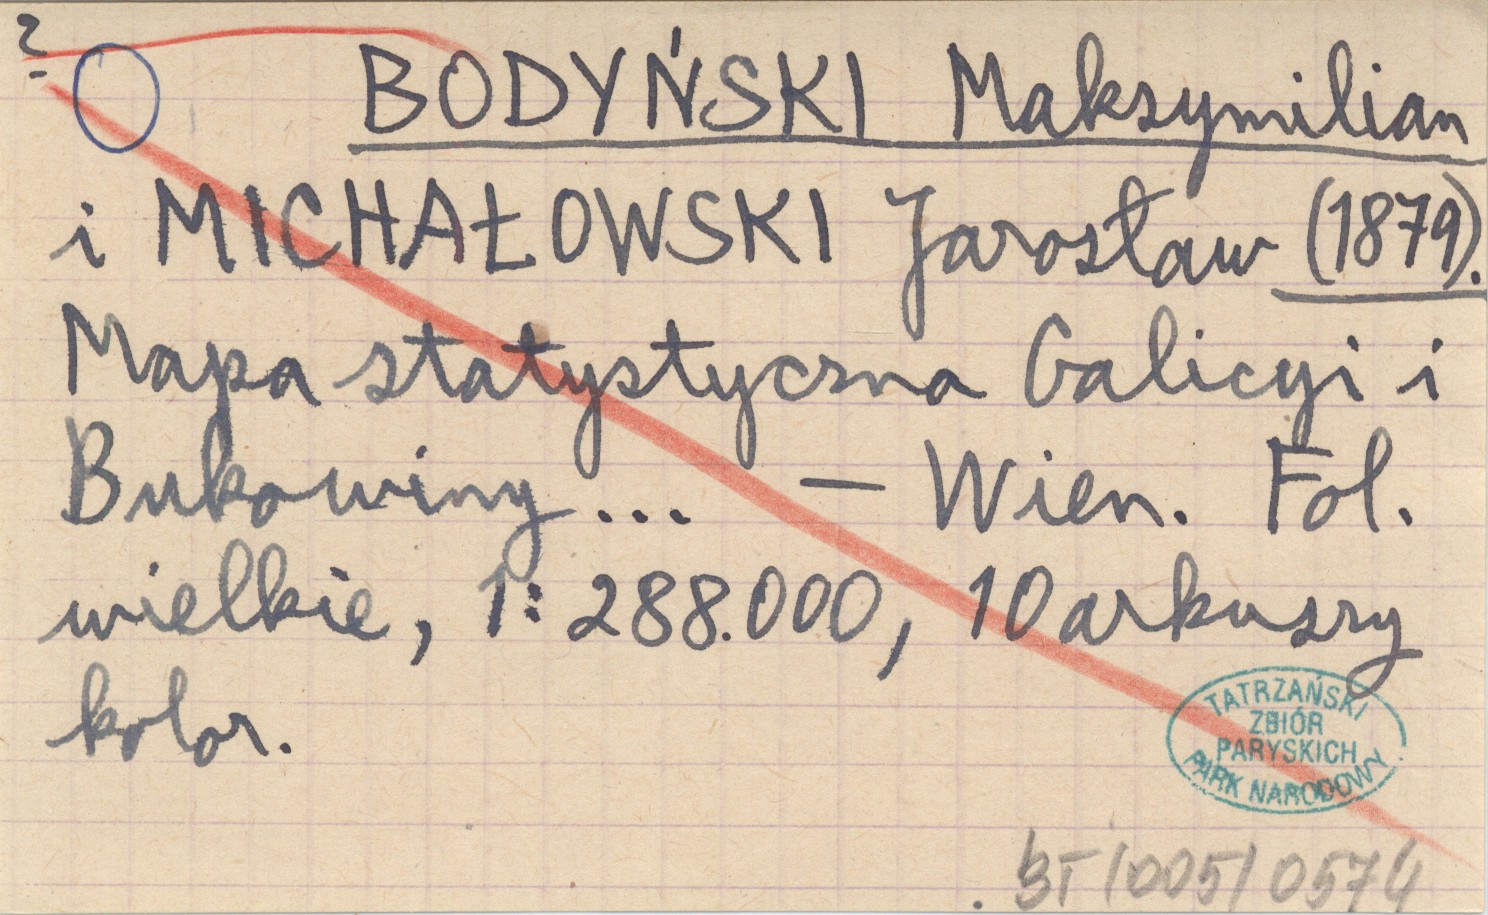 ?
BODYŃSKI Maksymilian
i MICHAŁOWSKI Jarosław (1879).
Mapa statystyczna Galicyi i
Bukowiny ... — Wien. Fol.
wielkie, 1:288.000, 10 arkuszy
kolor.
TATRZAŃSKI
ZBIÓR
PARYSKICH
PARK NARODOWY
BT/005/0574